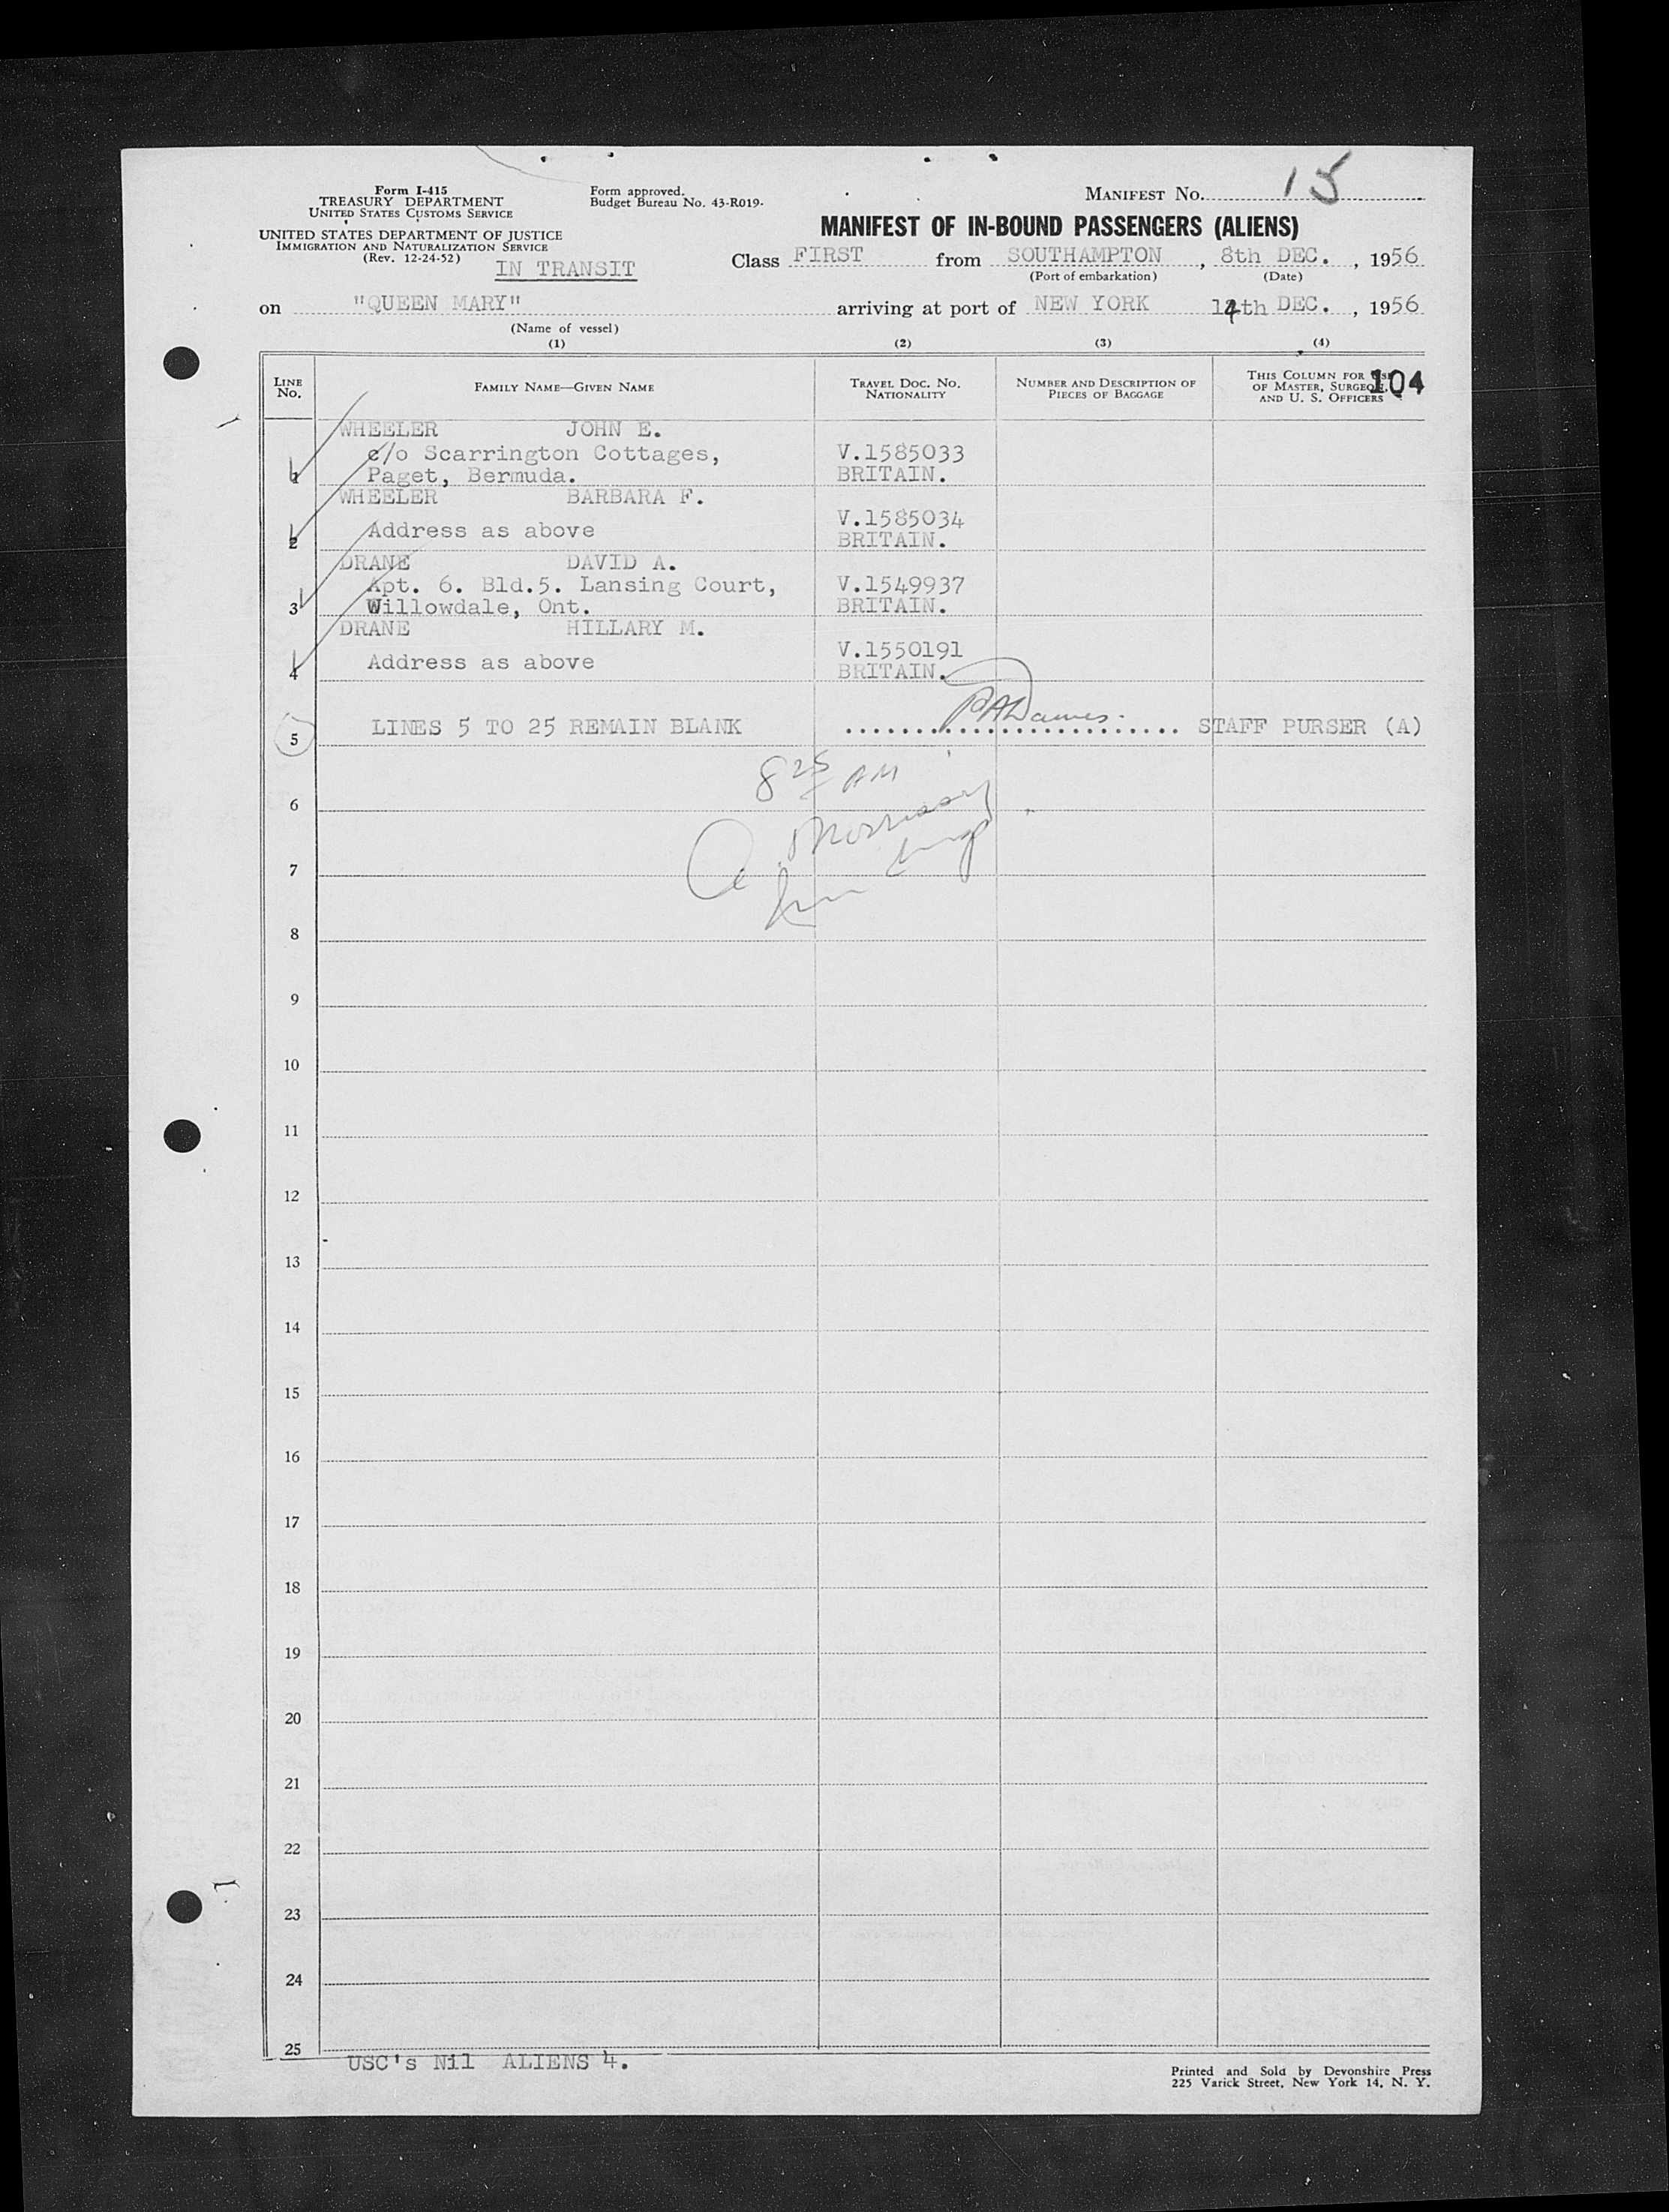 Form I-415
TREASURY DEPARTMENT
UNITED STATES CUSTOMS SERVICE
UNITED STATES DEPARTMENT OF JUSTICE
IMMIGRATION AND NATURALIZATION SERVICE
(Rev. 12-24-52)
IN TRANSIT
Form approved.
Budget Bureau No. 43-R019.
MANIFEST No. 15
MANIFEST OF IN-BOUND PASSENGERS (ALIENS)
Class FIRST from SOUTHAMPTON, 8th DEC., 1956
(Port of embarkation) (Date)
on "QUEEN MARY" arriving at port of NEW YORK 14th DEC., 1956
(Name of vessel)
(1) (2) (3) (4)
LINE No. FAMILY NAME—GIVEN NAME TRAVEL DOC. NO. NATIONALITY NUMBER AND DESCRIPTION OF PIECES OF BAGGAGE THIS COLUMN FOR USE OF MASTER, SURGEON, AND U. S. OFFICERS
104
WHEELER JOHN E.
c/o Scarrington Cottages, V.1585033
1 Paget, Bermuda. BRITAIN.
WHEELER BARBARA F.
V.1585034
2 Address as above BRITAIN.
DRANE DAVID A.
Apt. 6. Bld.5. Lansing Court, V.1549937
3 Willowdale, Ont. BRITAIN.
DRANE HILLARY M.
V.1550191
4 Address as above BRITAIN.
5 LINES 5 TO 25 REMAIN BLANK ........................ STAFF PURSER (A)
8 25 AM
6
7
8
9
10
11
12
13
14
15
16
17
18
19
20
21
22
23
24
25
USC's Nil ALIENS 4.
Printed and Sold by Devonshire Press
225 Varick Street, New York 14, N. Y.